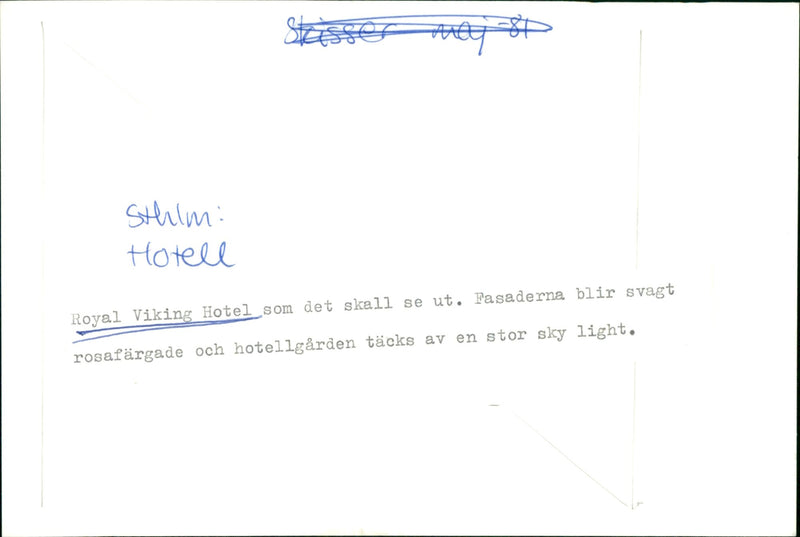 Skisser maj -81
Sthlm:
Hotell
Royal Viking Hotel som det skall se ut. Fasaderna blir svagt
rosafärgade och hotellgården täcks av en stor sky light.